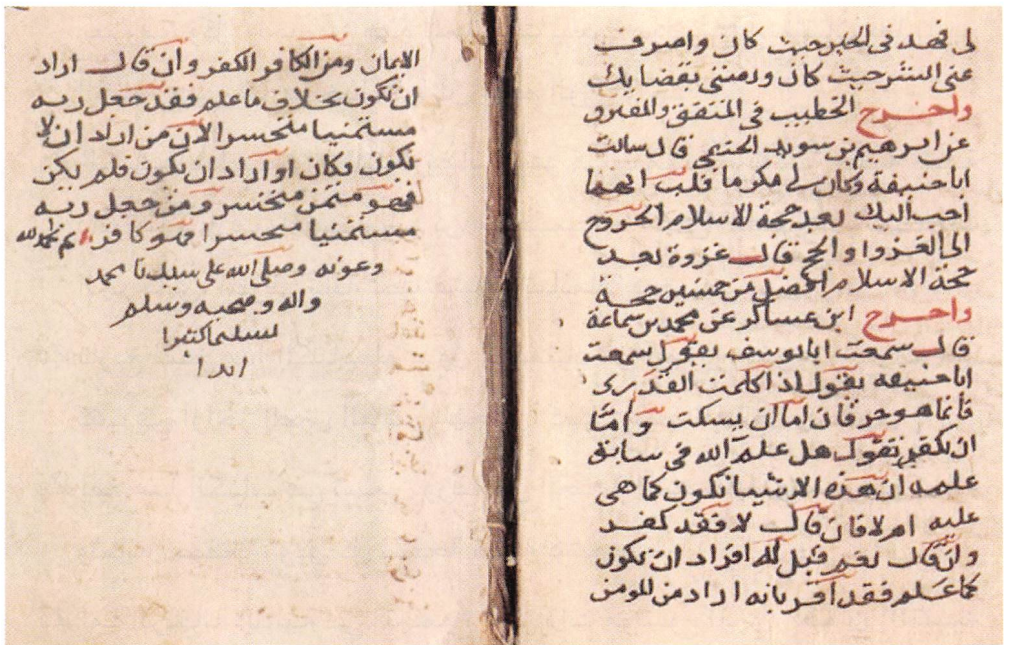 لى فهد فى الخير حيث كان واصرف
عنى الشر حيث كان ورضنى بقضايك
واخرج الخطيب فى المتفق والمفترق
عن ابرهيم بن سويد الحنفى قال سالت
ابا حنيفة وكان لى مكرما قلت ايهما
احب اليك بعد حجة الاسلام الخروج
الى الغزوا و الحج قال غزوة بعد
حجة الاسلام افضل من خمسين حجة
واخرج ابن عساكر عن محمد بن سماعة
قال سمعت ابا يوسف يقول سمعت
ابا حنيفه يقول اذا كلمت القدرى
فانما هو حرفان اما ان يسكت واما
ان يكفر تقول هل علم الله فى سابق
علمه ان هذه الاشيا تكون كما هى
عليه ام لا فان قال لا فقد كفر
وان قال نعم قيل له افراد ان تكون
كما علم فقد اقر بانه اراد من المومن
الايمان ومن الكافر الكفر وان قال اراد
ان تكون بخلاف ما علم فقد جعل ربه
مستمنيا متحسرا لان من اراد ان لا
يكون فكان او اراد ان يكون فلم يكن
فهو متمن متحسر ومن جعل ربه
مستمنيا متحسرا فهو كافر تم بحمد الله
وعونه وصلى الله على سيدنا محمد
واله وصحبه وسلم
تسليما كثيرا
ابدا